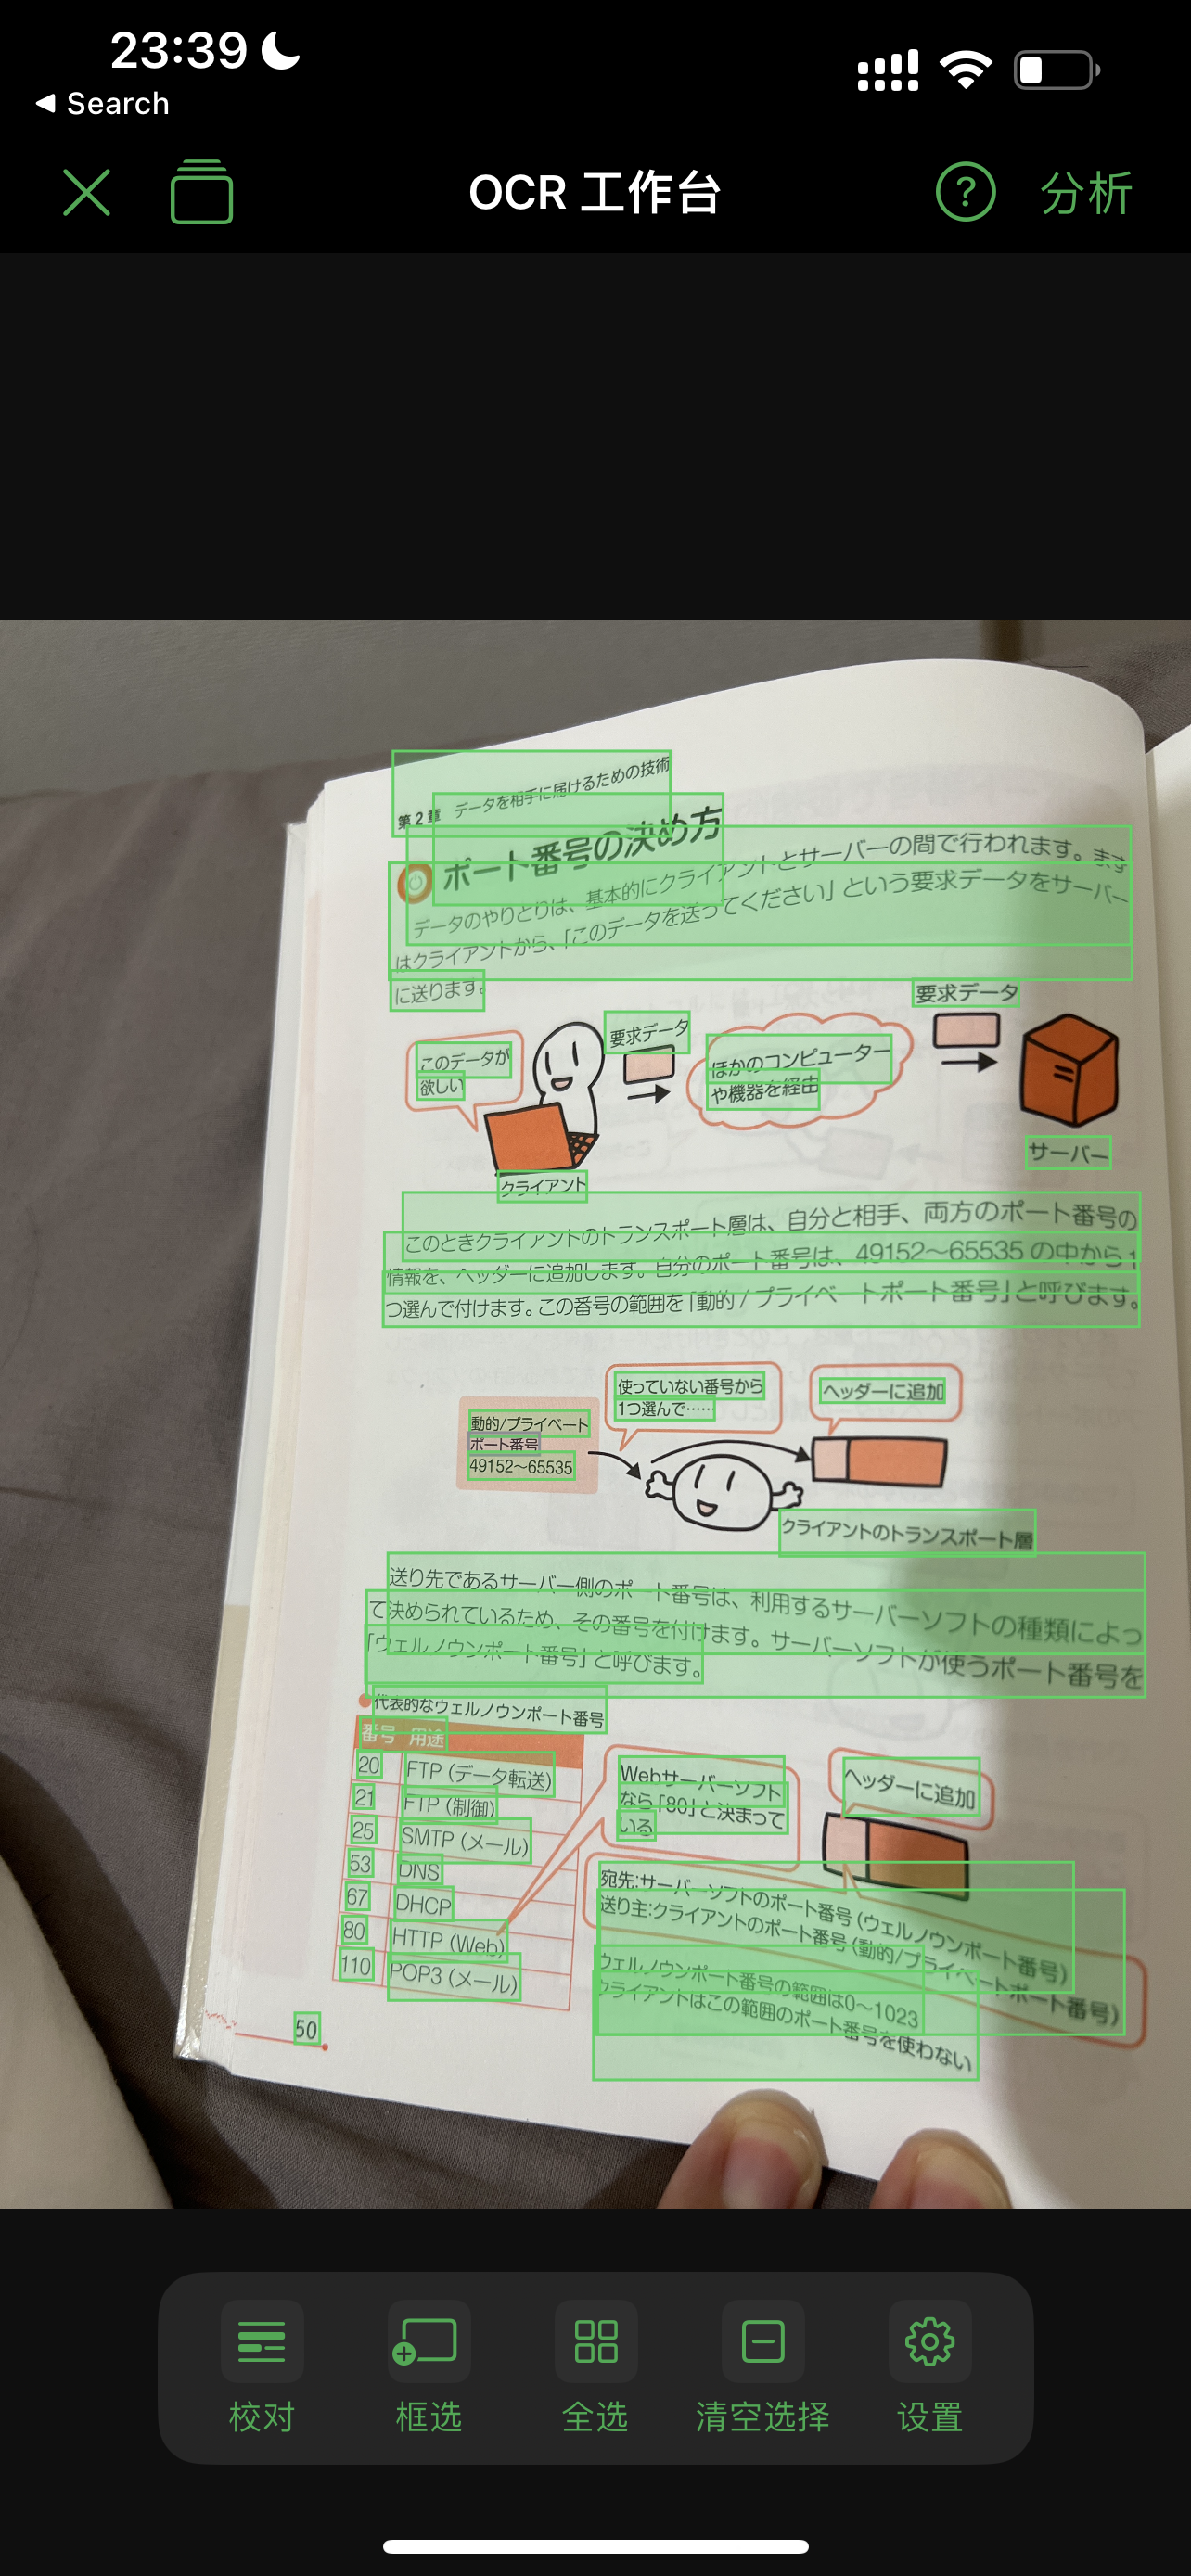 23:39
Search
OCR 工作台
分析
第2章 データを相手に届けるための技術
ポート番号の決め方
データのやりとりは、基本的にクライアントとサーバーの間で行われます。まず
はクライアントから、「このデータを送ってください」という要求データをサーバー
に送ります。
要求データ
要求データ
このデータが
欲しい
ほかのコンピューター
や機器を経由
サーバー
クライアント
このときクライアントのトランスポート層は、自分と相手、両方のポート番号の
情報を、ヘッダーに追加します。自分のポート番号は、49152〜65535 の中から 1
つ選んで付けます。この番号の範囲を「動的 / プライベートポート番号」と呼びます。
使っていない番号から
1つ選んで……
ヘッダーに追加
動的/プライベート
ポート番号
49152〜65535
クライアントのトランスポート層
送り先であるサーバー側のポート番号は、利用するサーバーソフトの種類によっ
て決められているため、その番号を付けます。サーバーソフトが使うポート番号を
「ウェルノウンポート番号」と呼びます。
代表的なウェルノウンポート番号
番号 用途
20 FTP (データ転送)
21 FTP (制御)
25 SMTP (メール)
53 DNS
67 DHCP
80 HTTP (Web)
110 POP3 (メール)
Webサーバーソフト
なら「80」と決まって
いる
ヘッダーに追加
宛先:サーバーソフトのポート番号 (ウェルノウンポート番号)
送り主:クライアントのポート番号 (動的/プライベートポート番号)
ウェルノウンポート番号の範囲は0〜1023
クライアントはこの範囲のポート番号を使わない
50
校对
框选
全选
清空选择
设置